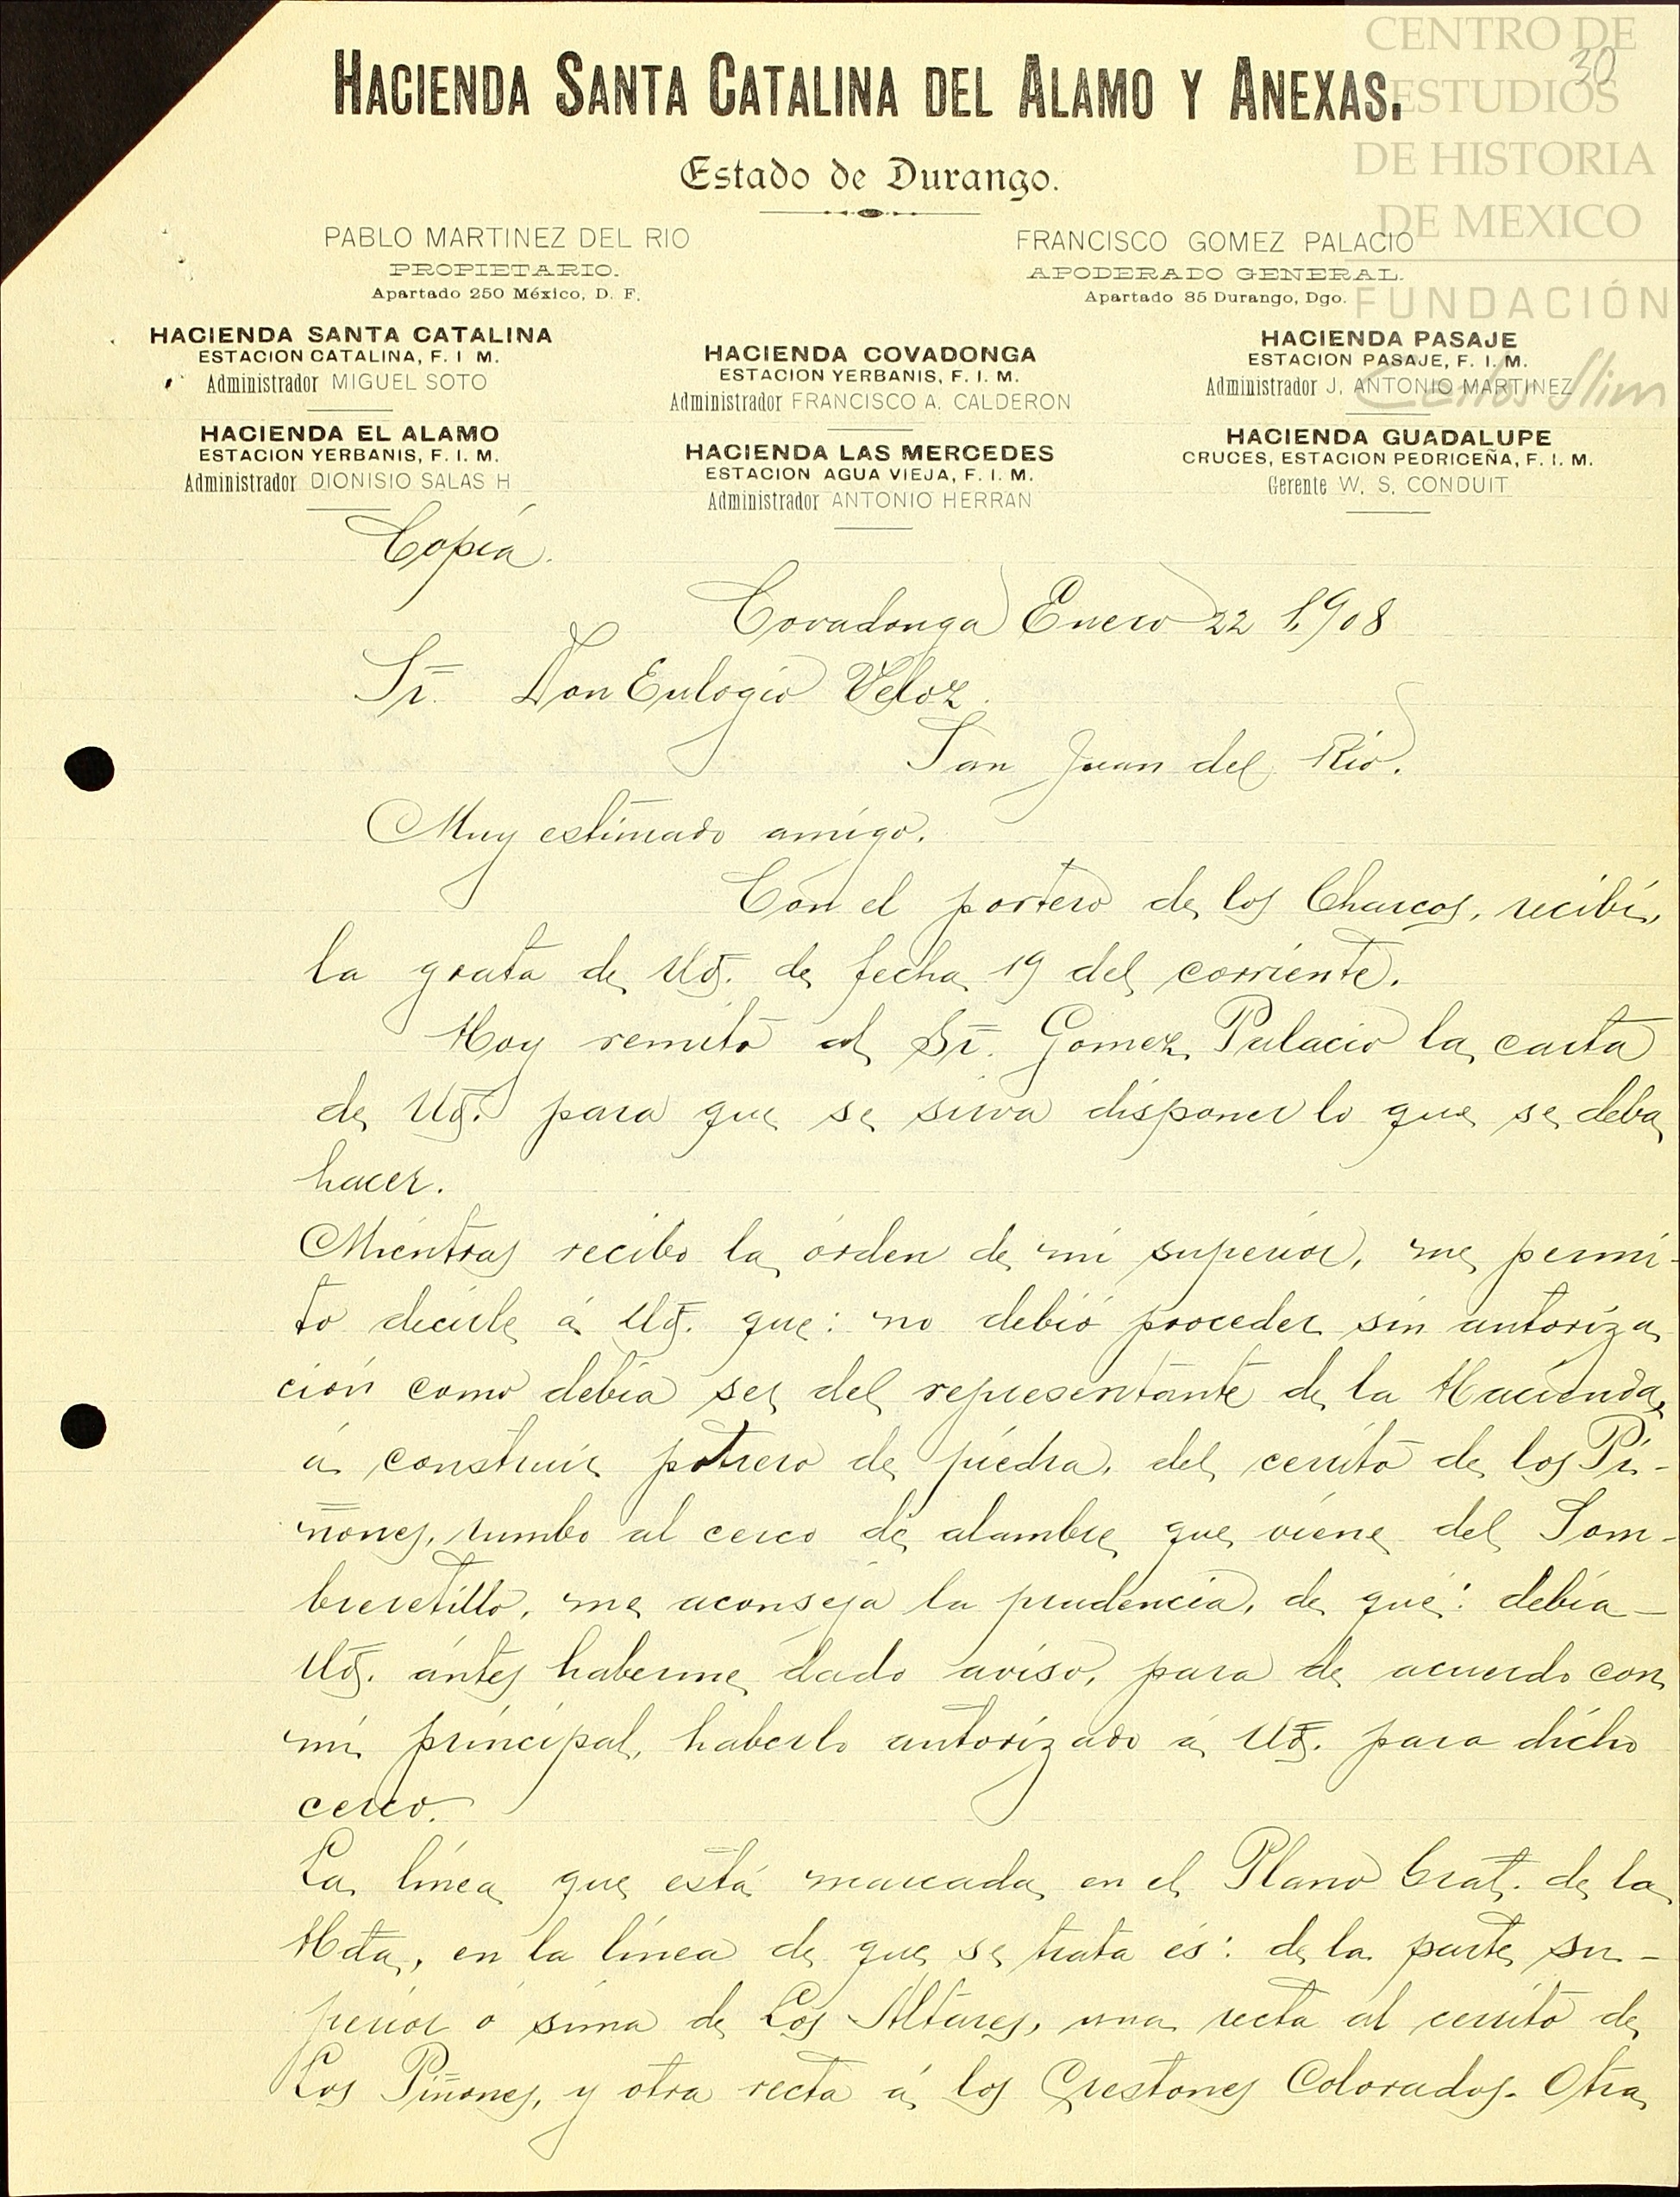 CENTRO DE
ESTUDIOS
DE HISTORIA
DE MEXICO
FUNDACIÓN
Carlos Slim
30
HACIENDA SANTA CATALINA DEL ALAMO Y ANEXAS.
Estado de Durango.
PABLO MARTINEZ DEL RIO
PROPIETARIO.
Apartado 250 México, D. F.
FRANCISCO GOMEZ PALACIO
APODERADO GENERAL.
Apartado 85 Durango, Dgo.
HACIENDA SANTA CATALINA
ESTACION CATALINA, F. I M.
Administrador MIGUEL SOTO
HACIENDA EL ALAMO
ESTACION YERBANIS, F. I. M.
Administrador DIONISIO SALAS H
HACIENDA COVADONGA
ESTACION YERBANIS, F. I. M.
Administrador FRANCISCO A. CALDERON
HACIENDA LAS MERCEDES
ESTACION AGUA VIEJA, F. I. M.
Administrador ANTONIO HERRAN
HACIENDA PASAJE
ESTACION PASAJE, F. I. M.
Administrador J. ANTONIO MARTINEZ
HACIENDA GUADALUPE
CRUCES, ESTACION PEDRICEÑA, F. I. M.
Gerente W. S. CONDUIT
Copia.
Covadonga Enero 22 1.908
Sr. Don Eulogio Veloz.
San Juan del Rio.
Muy estimado amigo.
Con el portero de los Charcos, recibí,
la grata de Ud. de fecha 19 del corriente.
Hoy remito al Sr. Gomez Palacio la carta
de Ud. para que se sirva disponer lo que se deba
hacer.
Miéntras recibo la órden de mi superior, me permi-
to decirle á Ud. que: no debió proceder sin autoriza
ción como debia ser del representante de la Hacienda,
á construir potrero de piedra, del cerrito de los Pi-
ñones, rumbo al cerco de alambre que viene del Som-
breretillo, me aconseja la prudencia, de que: debia-
Ud. ántes haberme dado aviso, para de acuerdo con
mi principal, haberlo autorizado á Ud. para dicho
cerco.
La línea que está marcada en el Plano Gral. de la
Hda, en la línea de que se trata és: de la parte su-
perior ó sima de Los Altares, una recta al cerrito de
Los Piñones, y otra recta á los Crestones Colorados. Otra